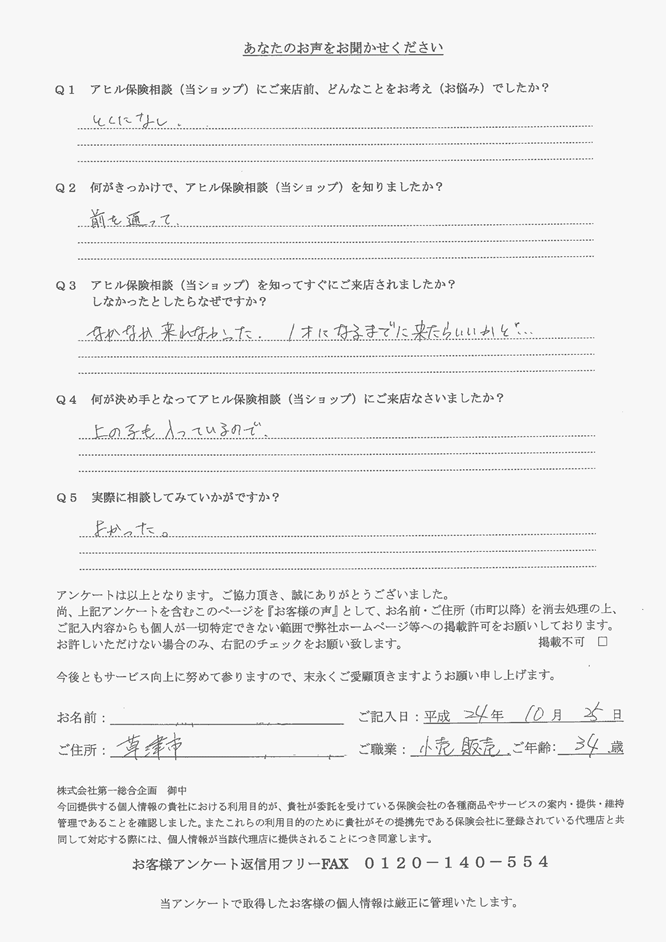 あなたのお声をお聞かせください
Q1 アヒル保険相談（当ショップ）にご来店前、どんなことをお考え（お悩み）でしたか？
とくになし.
Q2 何がきっかけで、アヒル保険相談（当ショップ）を知りましたか？
前を通って.
Q3 アヒル保険相談（当ショップ）を知ってすぐにご来店されましたか？
しなかったとしたらなぜですか？
なかなか来れなかった. 1才になるまでに来たらいいかと…
Q4 何が決め手となってアヒル保険相談（当ショップ）にご来店なさいましたか？
上の子も入っているので.
Q5 実際に相談してみていかがですか？
よかった。
アンケートは以上となります。ご協力頂き、誠にありがとうございました。
尚、上記アンケートを含むこのページを『お客様の声』として、お名前・ご住所（市町以降）を消去処理の上、
ご記入内容からも個人が一切特定できない範囲で弊社ホームページ等への掲載許可をお願いしております。
お許しいただけない場合のみ、右記のチェックをお願い致します。 掲載不可 □
今後ともサービス向上に努めて参りますので、末永くご愛顧頂きますようお願い申し上げます。
お名前： ご記入日：平成 24年 10月 25日
ご住所： 草津市 ご職業：小売販売 ご年齢： 34 歳
株式会社第一総合企画 御中
今回提供する個人情報の貴社における利用目的が、貴社が委託を受けている保険会社の各種商品やサービスの案内・提供・維持
管理であることを確認しました。またこれらの利用目的のために貴社がその提携先である保険会社に登録されている代理店と共
同して対応する際には、個人情報が当該代理店に提供されることにつき同意します。
お客様アンケート返信用フリーFAX 0120－140－554
当アンケートで取得したお客様の個人情報は厳正に管理いたします。